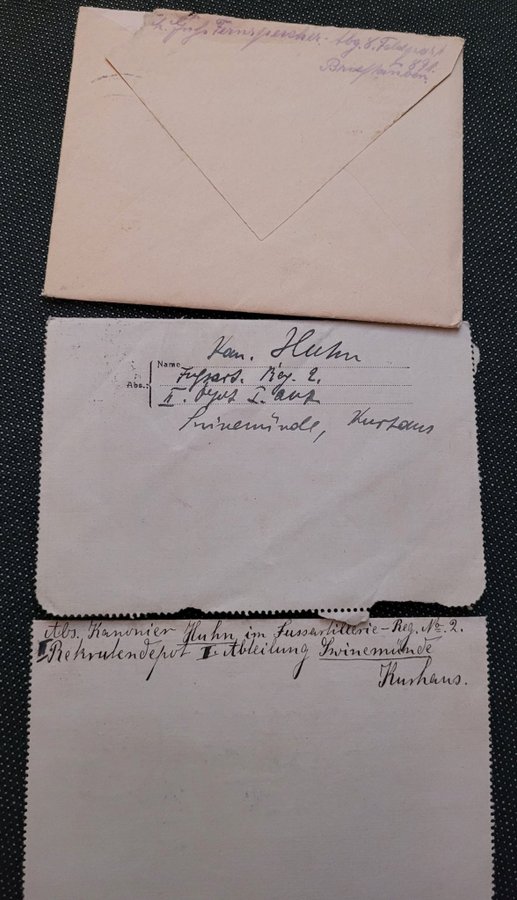 Fernsprecher-Abg. 8. Feldpost
Brieftauben.
Kan. Huhn
Name
Abs.:
Fußart. Reg. 2.
II. Dpot I. Abt
Swinemünde, Kurhaus
Abs. Kanonier Huhn, im Fussartillerie-Reg. No. 2.
II Rekrutendepot I. Abteilung Swinemünde
Kurhaus.